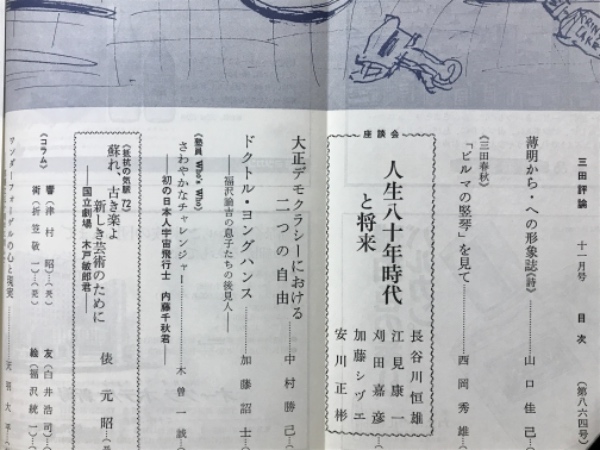 三田評論 十一月号 目次 (第八六四号)
薄明から・への形象誌《詩》…………山口佳己…(
《三田春秋》
「ビルマの竪琴」を見て…………西岡秀雄…(
座談会
人生八十年時代
と将来
長谷川恒雄
江見康一
刈田嘉彦
加藤シヅエ
安川正彬
大正デモクラシーにおける
二つの自由…………中村勝己…(
ドクトル・ヨングハンス…………加藤詔士…(
――福沢諭吉の息子たちの後見人――
《塾員 Who's Who》
さわやかなチャレンジャー…………木曽一誠…(
――初の日本人宇宙飛行士 内藤千秋君――
《抵抗の気脈 72》
蘇れ、古き楽よ
新しき芸術のために…………俵元昭…(
――国立劇場 木戸敏郎君――
《コラム》
響(津村 昭)…(
街(折笠敬一)…(
友(白井浩司)…(
絵(福沢統一)…(